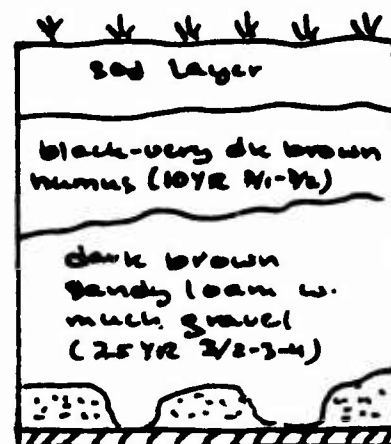 sod layer
black-very dk brown
humus (10YR 2/1-2/2)
dark brown
sandy loam w.
much gravel
(25YR 3/2-3-4)